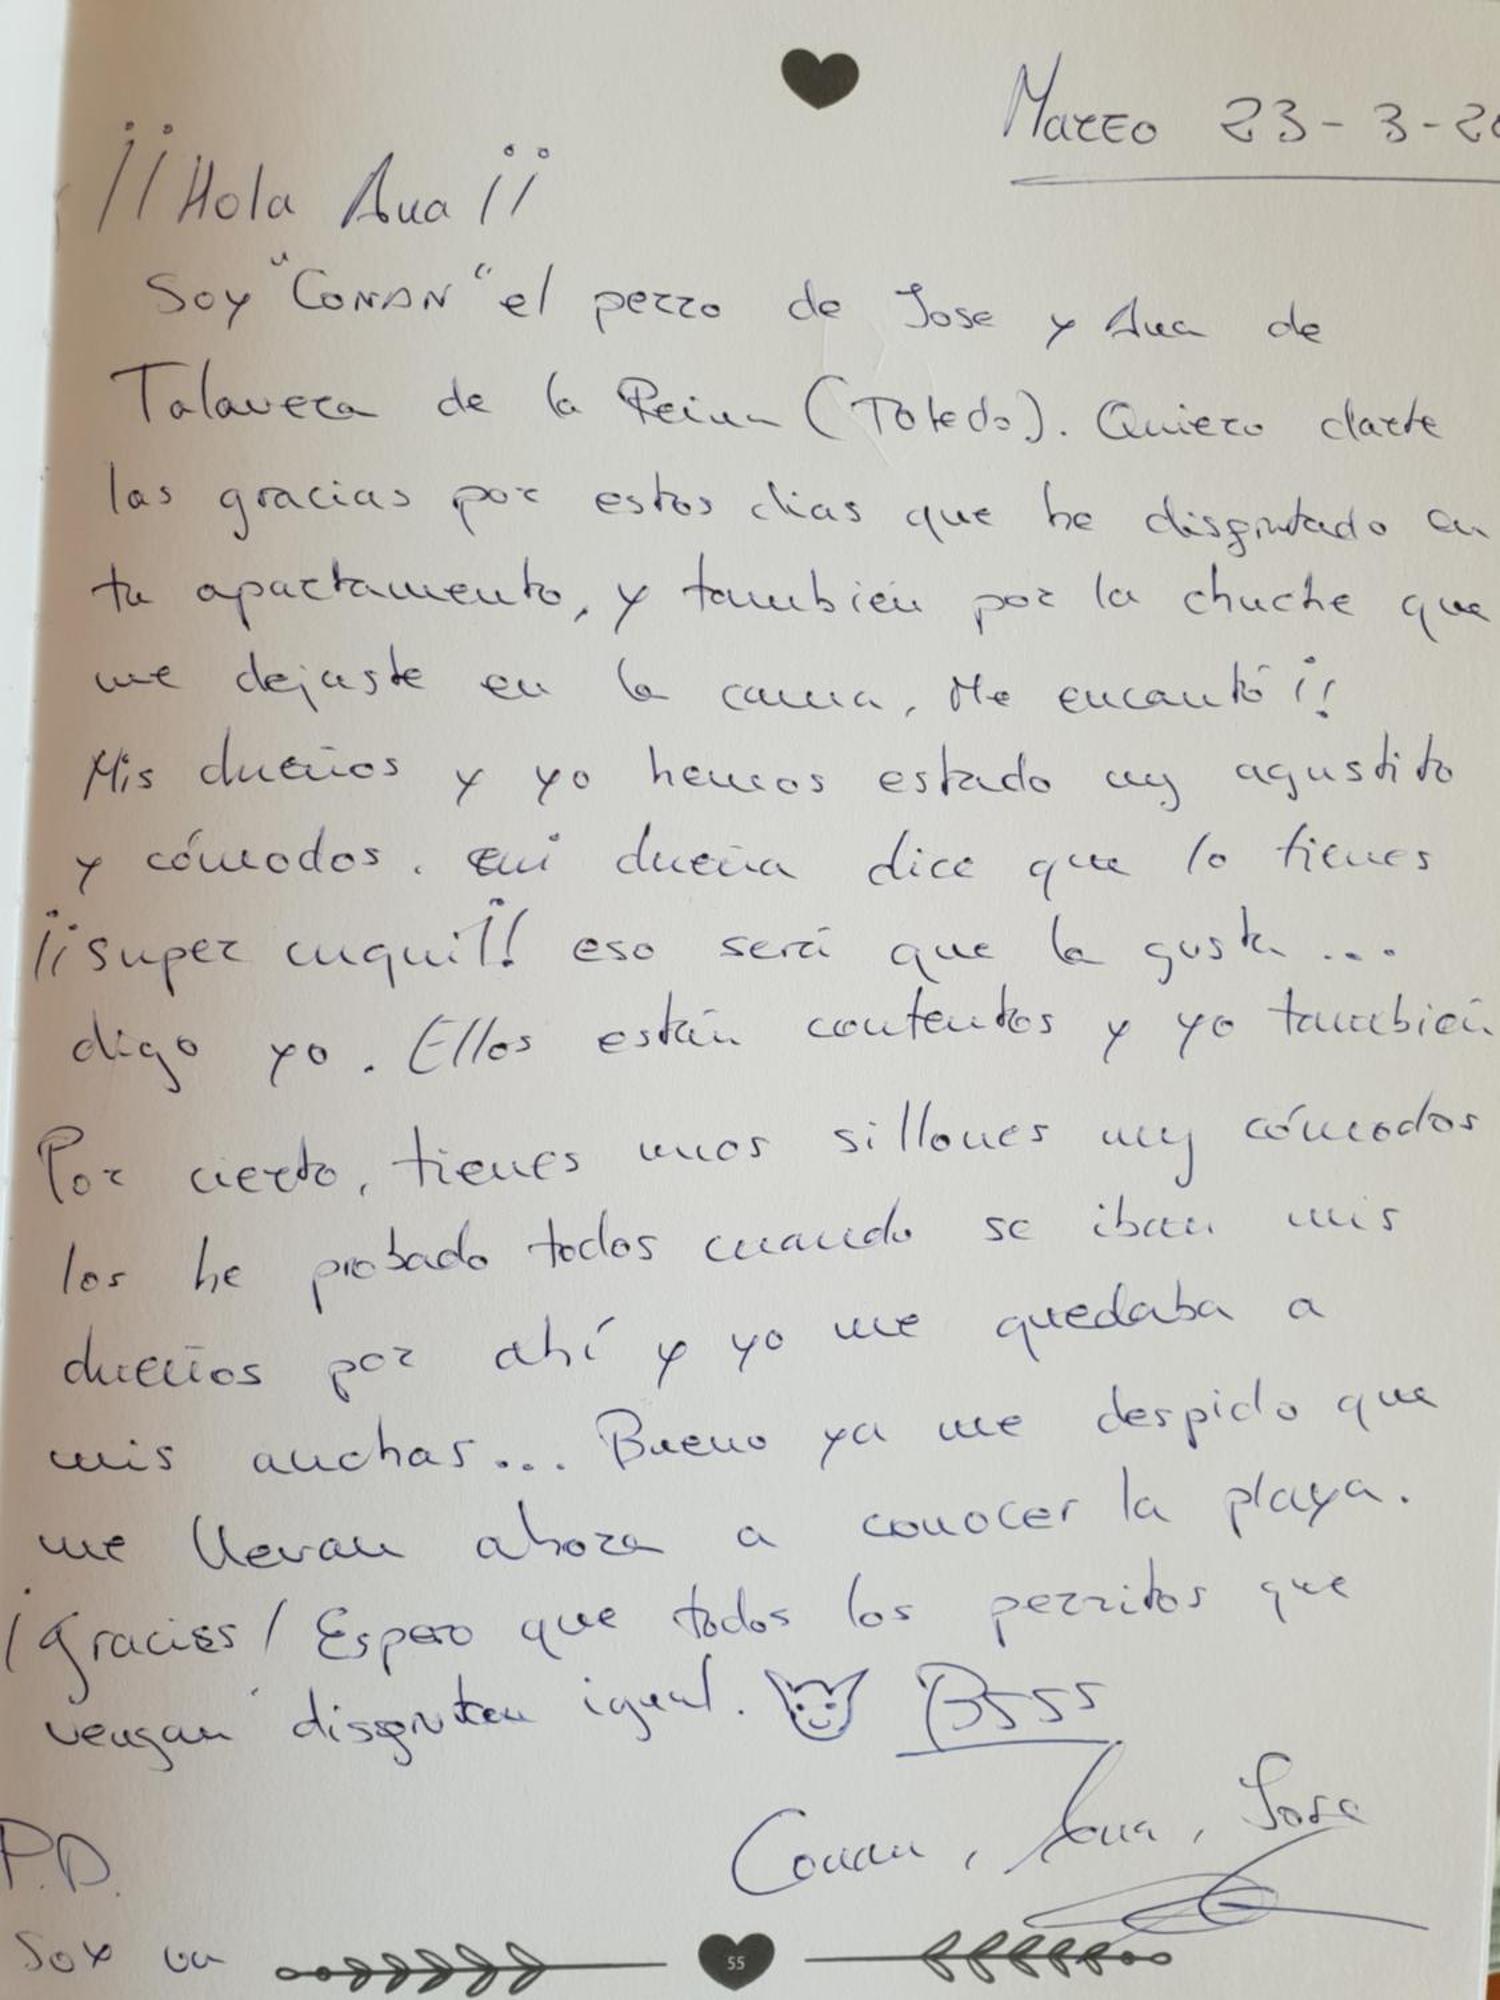 Marzo 23-3-20
¡¡Hola Ana¡¡
Soy "CONAN" el perro de Jose y Ana de
Talavera de la Reina (Toledo). Quiero darte
las gracias por estos dias que he disfrutado en
tu apartamento, y también por la chuche que
me dejaste en la cama. Me encantó¡!
Mis dueños y yo hemos estado muy agustito
y cómodos. mi dueña dice que lo tienes
¡¡super cuqui!! eso será que la gusta...
digo yo. Ellos están contentos y yo también
Por cierto, tienes unos sillones muy cómodos
los he probado todos cuando se iban mis
dueños por ahí y yo me quedaba a
mis anchas... Bueno ya me despido que
me llevan ahora a conocer la playa.
¡Gracias! Espero que todos los perritos que
vengan disfruten igual. Bsss
Conan, Ana, Jose
P.D.
Soy un
55